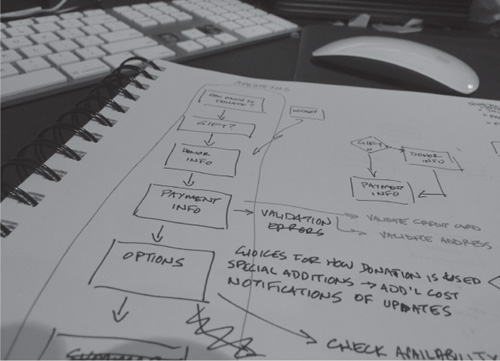 GIFT?
DONOR
INFO
PAYMENT
INFO
VALIDATION
ERRORS
VALIDATE CREDIT CARD
VALIDATE ADDRESS
OPTIONS
CHOICES FOR HOW DONATION IS USED
SPECIAL ADDITIONS → ADD'L COST
NOTIFICATIONS OF UPDATES
CHECK AVAILABILIT
GIFT?
DONOR
INFO
PAYMENT
INFO